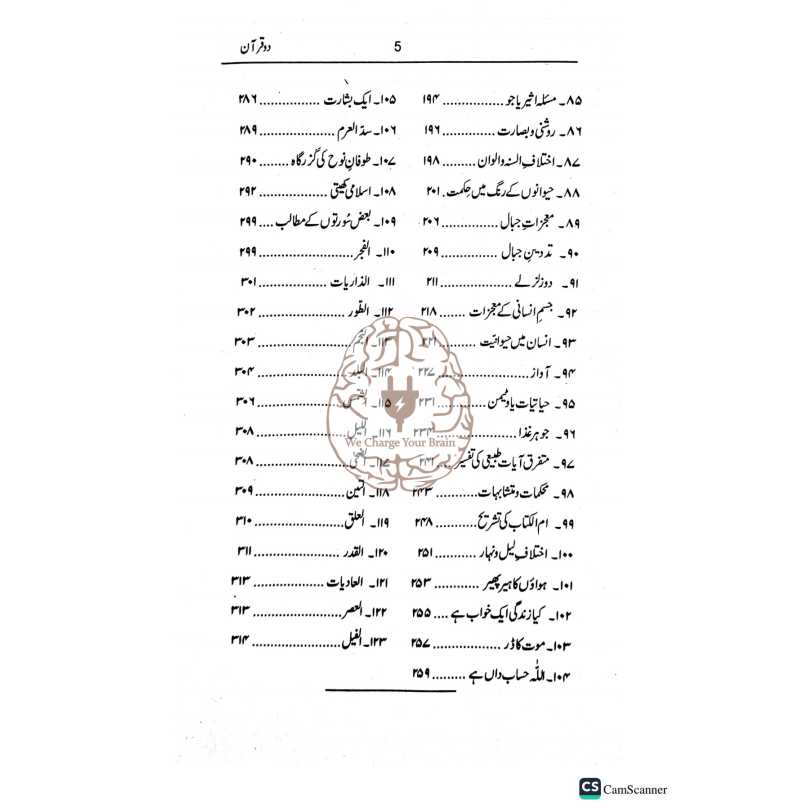 دو قرآن
5
۸۵۔ مسئلہ اثیر یا جو ................ ۱۹۴
۸۶۔ روشنی و بصارت .............. ۱۹۶
۸۷۔ اختلافِ السنہ و الوان ......... ۱۹۸
۸۸۔ حیوانوں کے رنگ میں حکمت . ۲۰۱
۸۹۔ معجزاتِ جبال ............... ۲۰۶
۹۰۔ تدوینِ جبال .............. ۲۰۹
۹۱۔ دو زلزلے ................... ۲۱۱
۹۲۔ جسمِ انسانی کے معجزات ....... ۲۱۸
۹۳۔ انسان میں حیوانیت .......... ۲۲۱
۹۴۔ آواز ........................ ۲۲۷
۹۵۔ حیاتیات یا وٹیمن ............. ۲۳۱
۹۶۔ جوہرِ غذا ..................... ۲۳۴
۹۷۔ متفرق آیات طبیعی کی تفسیر .... ۲۴۲
۹۸۔ محکمات و متشابہات ........... ۲۴۳
۹۹۔ ام الکتاب کی تشریح ........... ۲۴۸
۱۰۰۔ اختلافِ لیل و نہار ........... ۲۵۱
۱۰۱۔ ہواؤں کا ہیر پھیر ............ ۲۵۳
۱۰۲۔ کیا زندگی ایک خواب ہے .... ۲۵۵
۱۰۳۔ موت کا ڈر .................. ۲۵۷
۱۰۴۔ اللہ حساب داں ہے ......... ۲۵۹
۱۰۵۔ ایک بشارت ................ ۲۸۶
۱۰۶۔ سدّ العرم .................... ۲۸۹
۱۰۷۔ طوفانِ نوح کی گزرگاہ ........ ۲۹۰
۱۰۸۔ اسلامی کھیتی .................. ۲۹۲
۱۰۹۔ بعض سُورتوں کے مطالب .... ۲۹۹
۱۱۰۔ الفجر ......................... ۲۹۹
۱۱۱۔ الذاریات .................. ۳۰۱
۱۱۲۔ الطّور ....................... ۳۰۲
۱۱۳۔ النجم ......................... ۳۰۳
۱۱۴۔ البلد ........................ ۳۰۴
۱۱۵۔ الشمس ...................... ۳۰۶
۱۱۶۔ اللیل ........................ ۳۰۸
۱۱۷۔ الضحیٰ ....................... ۳۰۸
۱۱۸۔ التین ........................ ۳۰۹
۱۱۹۔ العلق ........................ ۳۱۰
۱۲۰۔ القدر ....................... ۳۱۱
۱۲۱۔ العادیات ................... ۳۱۳
۱۲۲۔ العصر ....................... ۳۱۳
۱۲۳۔ الفیل ........................ ۳۱۴
We Charge Your Brain
CS CamScanner